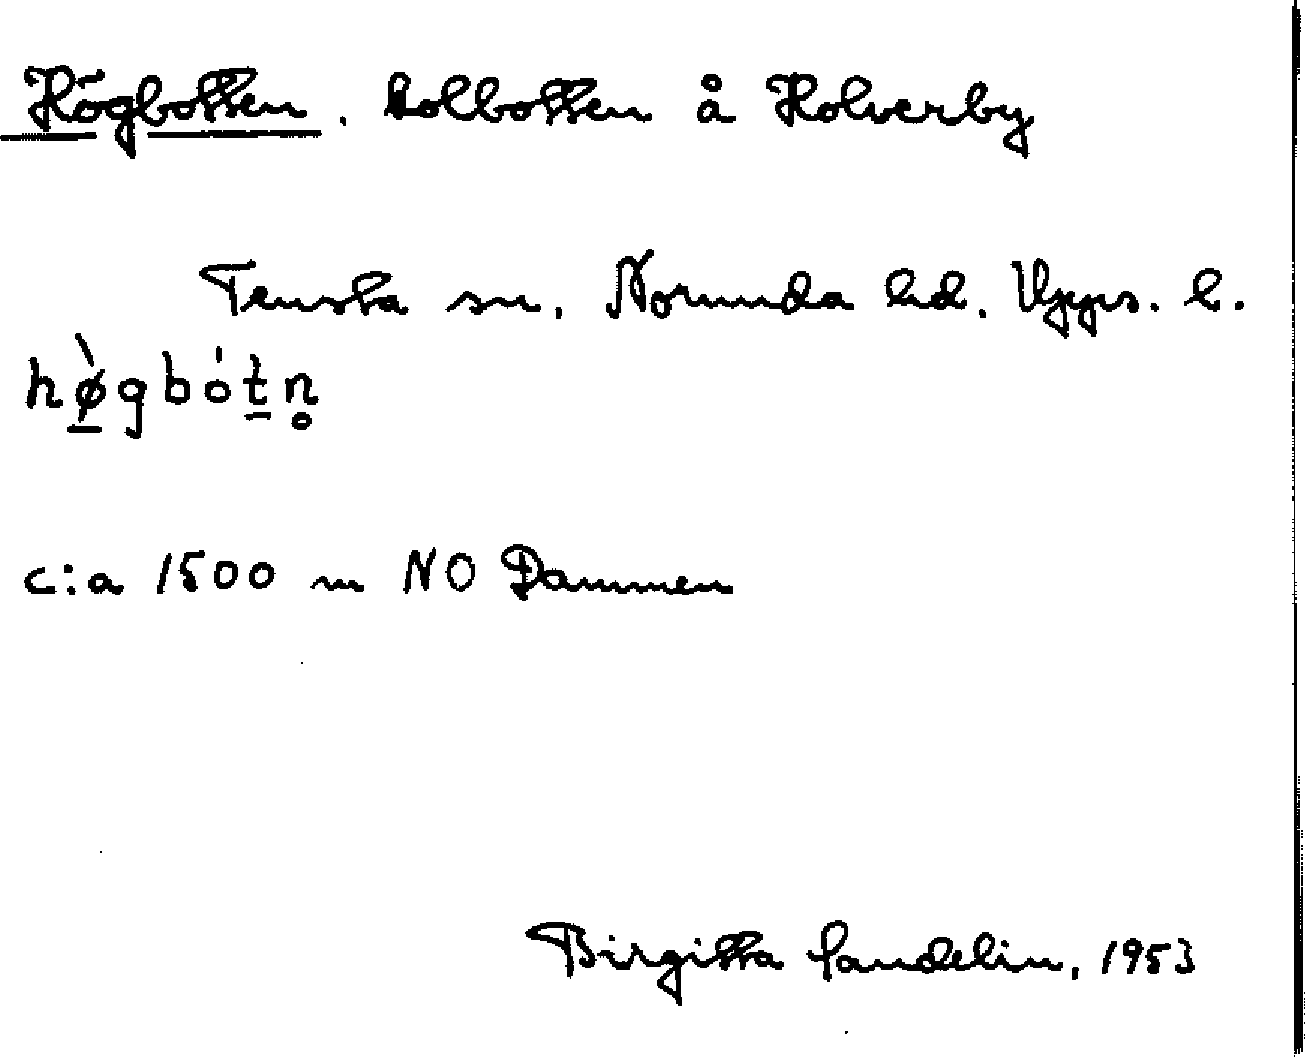 Högbotten. kolbotten å Kolverby
Tensta sn. Norunda hd. Upps. l.
hø̀gbótn̥
c:a 1500 m NO Dammen
Birgitta Sandelin, 1953